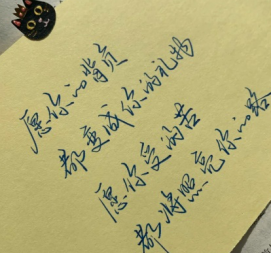 愿你的背负
都变成你的礼物
愿你受的苦
都将照亮你的路